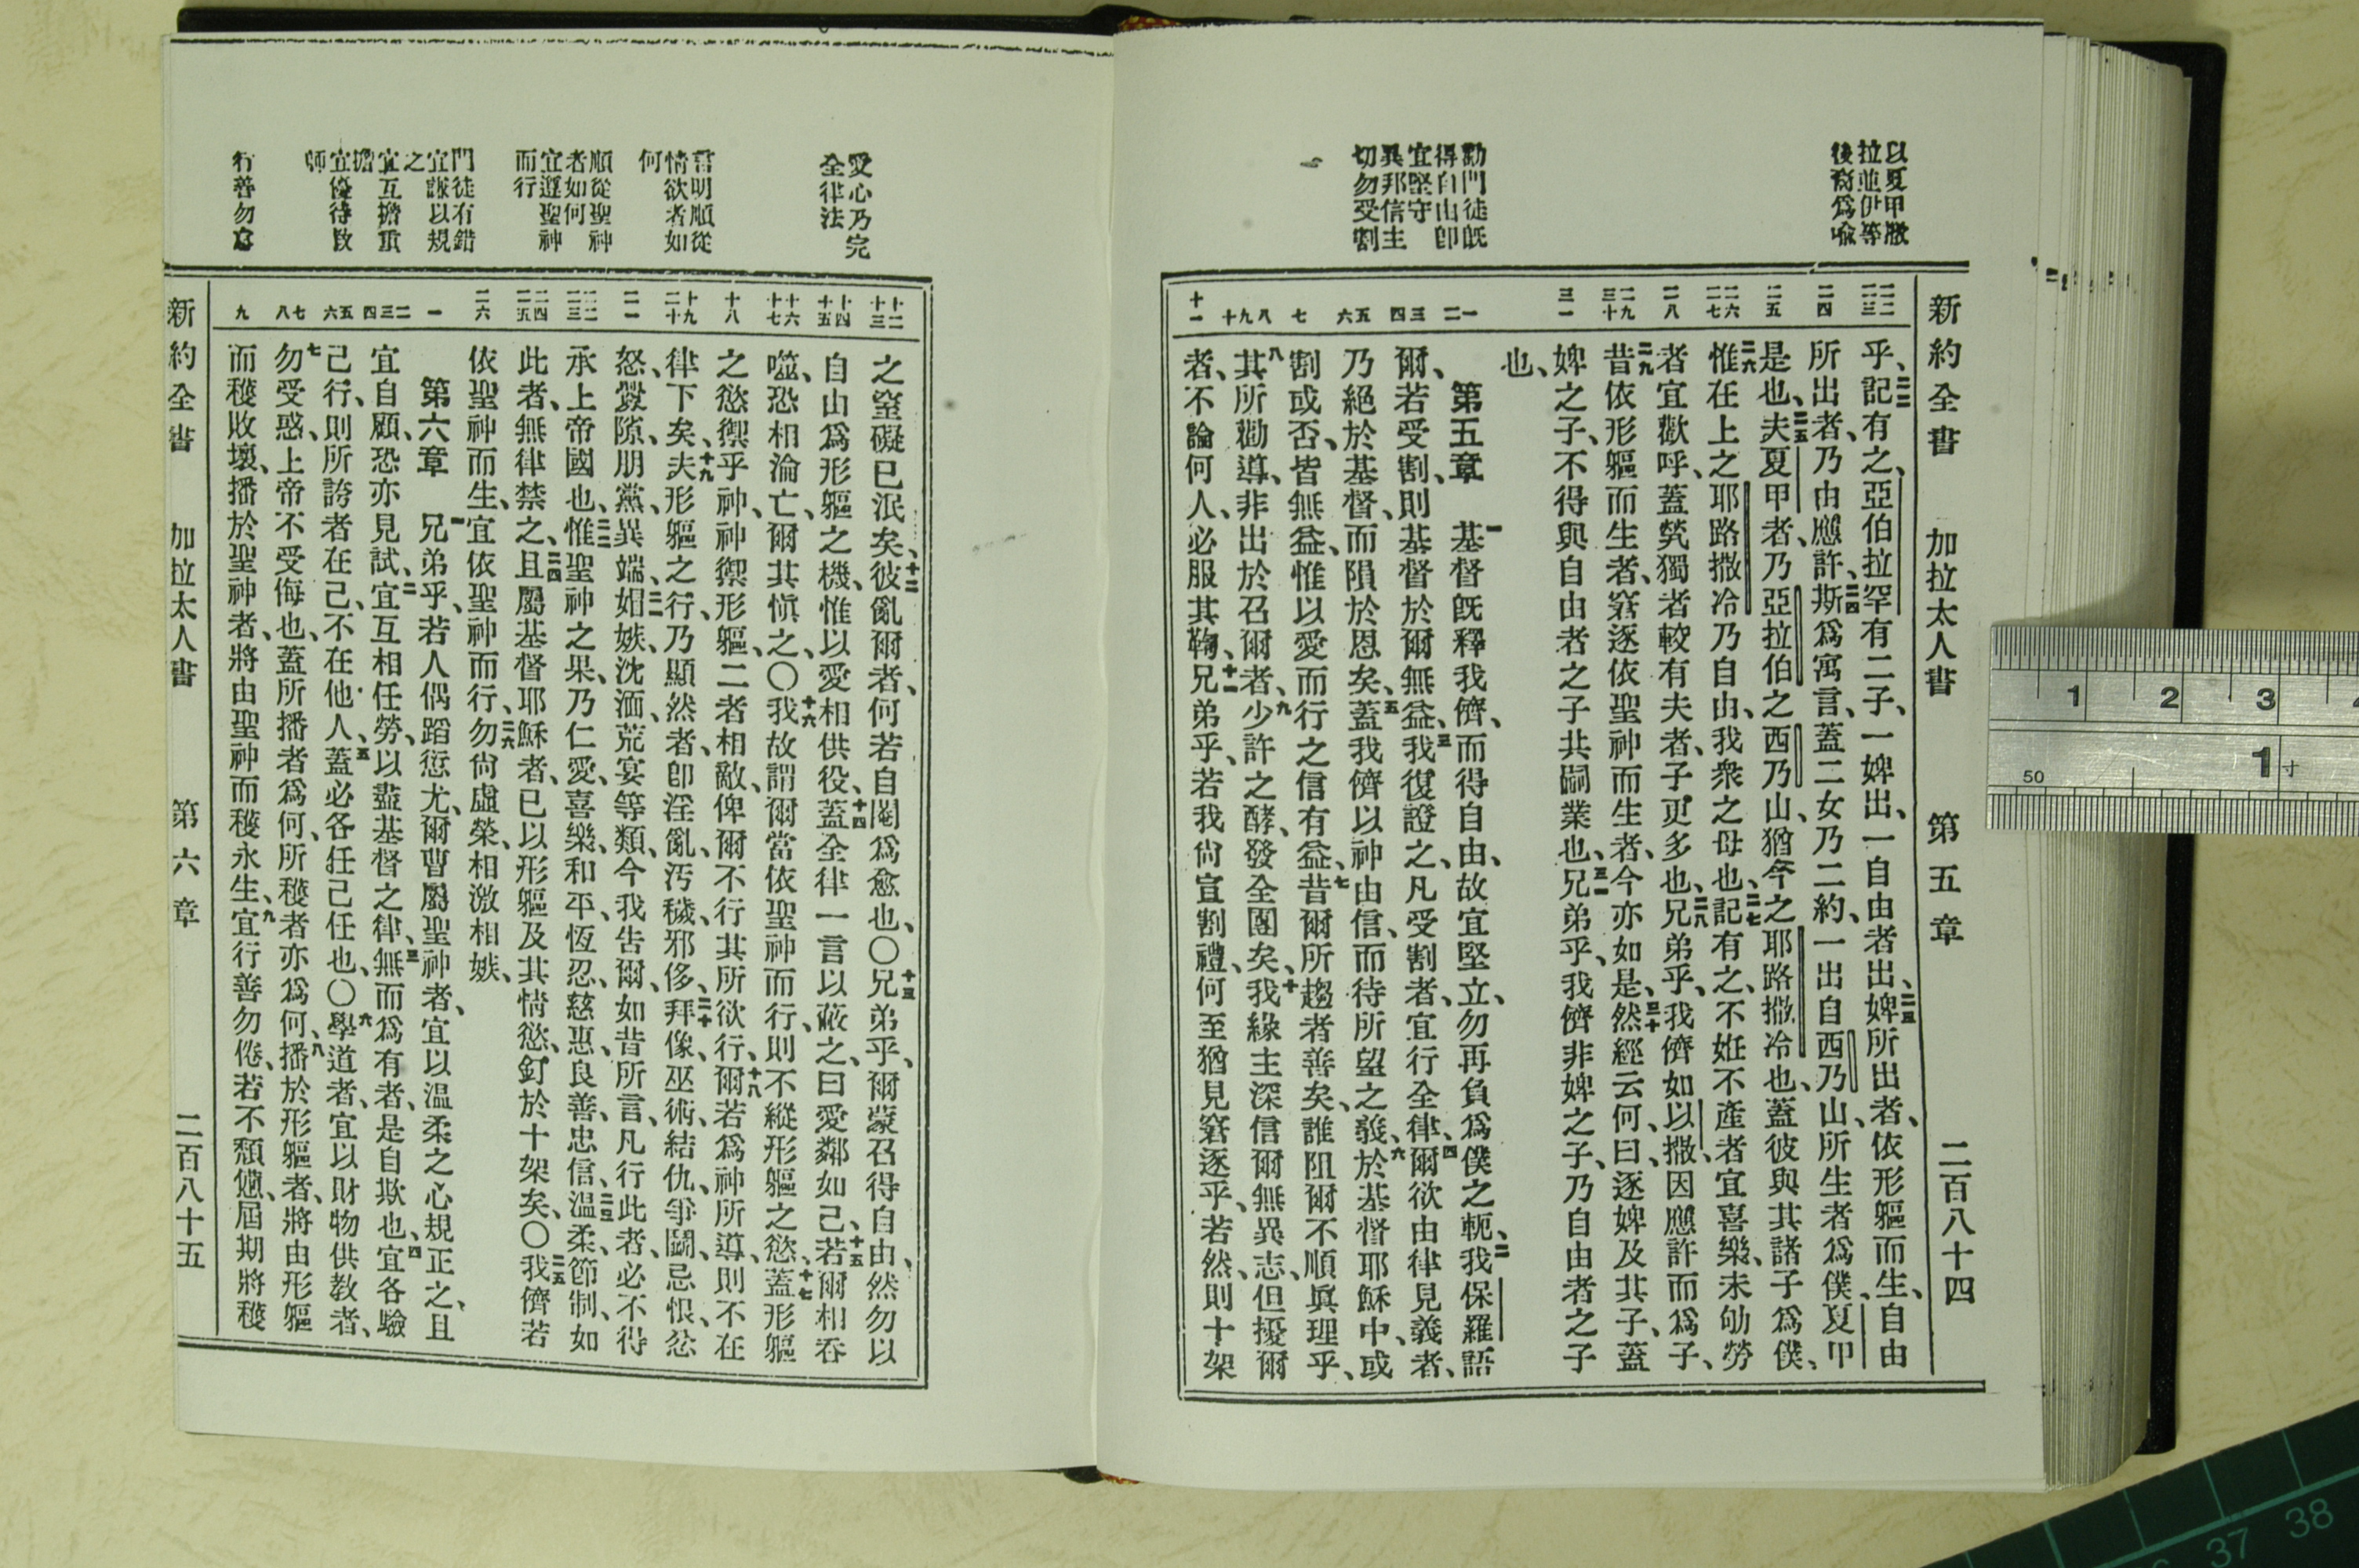 新約全書 加拉太人書 第五章 二百八十四
以夏甲撒
拉並伊等
後裔爲喩
勸門徒旣
得自由卽
宜堅守
異邦信主
切勿受割
二二 二三
二四
二五
二六 二七
二八
二九 三十
三一
一 二
三 四
五 六
七
八 九 十
十一
乎、二二記有之、亞伯拉罕有二子、一婢出、一自由者出、二三婢所出者、依形軀而生、自由
所出者、乃由應許、二四斯爲寓言、蓋二女乃二約、一出自西乃山、所生者爲僕、夏甲
是也、二五夫夏甲者、乃亞拉伯之西乃山、猶今之耶路撒冷也、蓋彼與其諸子爲僕、
二六惟在上之耶路撒冷乃自由、我衆之母也、二七記有之、不姙不產者宜喜樂、未劬勞
者宜歡呼、蓋煢獨者較有夫者、子更多也、二八兄弟乎、我儕如以撒、因應許而爲子、
二九昔依形軀而生者、窘逐依聖神而生者、今亦如是、三十然經云何、曰、逐婢及其子、蓋
婢之子、不得與自由者之子共嗣業也、三一兄弟乎、我儕非婢之子、乃自由者之子
也、
第五章 一基督旣釋我儕、而得自由、故宜堅立、勿再負爲僕之軛、二我保羅語
爾、若受割、則基督於爾無益、三我復證之、凡受割者、宜行全律、四爾欲由律見義者、
乃絕於基督、而隕於恩矣、五蓋我儕以神由信、而待所望之義、六於基督耶穌中、或
割或否、皆無益、惟以愛而行之信有益、七昔爾所趨者善矣、誰阻爾不順眞理乎、
八其所勸導、非出於召爾者、九少許之酵、發全團矣、十我緣主深信爾無異志、但擾爾
者、不論何人、必服其鞫、十一兄弟乎、若我尙宣割禮、何至猶見窘逐乎、若然、則十架
愛心乃完
全律法
言明順從
情欲者如
何
順從聖神
者如何
宜遵聖神
而行
門徒有錯
宜謙以規
之
宜互擔重
擔
宜優待敎
師
行善勿怠
十二 十三
十四 十五
十六 十七
十八
十九 二十
二一
二二 二三
二四 二五
二六
一
二 三 四
五 六
七 八
九
之窒礙已泯矣、十二彼亂爾者、何若自閹爲愈也、〇十三兄弟乎、爾蒙召得自由、然勿以
自由爲形軀之機、惟以愛相供役、十四蓋全律一言以蔽之、曰愛鄰如己、十五若爾相吞
噬、恐相淪亡、爾其愼之、〇十六我故謂爾當依聖神而行、則不縱形軀之慾、十七蓋形軀
之慾禦乎神、神禦形軀、二者相敵、俾爾不行其所欲行、十八爾若爲神所導、則不在
律下矣、十九夫形軀之行、乃顯然者、卽淫亂、汚穢、邪侈、二十拜像、巫術、結仇、爭鬬、忌恨、忿
怒、釁隙、朋黨、異端、二一娼嫉、沈湎、荒宴等類、今我告爾、如昔所言、凡行此者、必不得
承上帝國也、二二惟聖神之果、乃仁愛、喜樂、和平、恆忍、慈惠、良善、忠信、二三溫柔、節制、如
此者、無律禁之、二四且屬基督耶穌者、已以形軀及其情慾、釘於十架矣、〇二五我儕若
依聖神而生、宜依聖神而行、二六勿尙虛榮、相激相嫉、
第六章 一兄弟乎、若人偶蹈愆尤、爾曹屬聖神者、宜以溫柔之心規正之、且
宜自顧、恐亦見試、二宜互相任勞、以盡基督之律、三無而爲有者、是自欺也、四宜各驗
己行、則所誇者在己、不在他人、五蓋必各任己任也、〇六學道者、宜以財物供敎者、
七勿受惑、上帝不受侮也、蓋所播者爲何、所穫者亦爲何、八播於形軀者、將由形軀
而穫敗壞、播於聖神者、將由聖神而穫永生、九宜行善勿倦、若不頹憊、屆期將穫
新約全書 加拉太人書 第六章 二百八十五
1 2 3
50
1寸
37 38